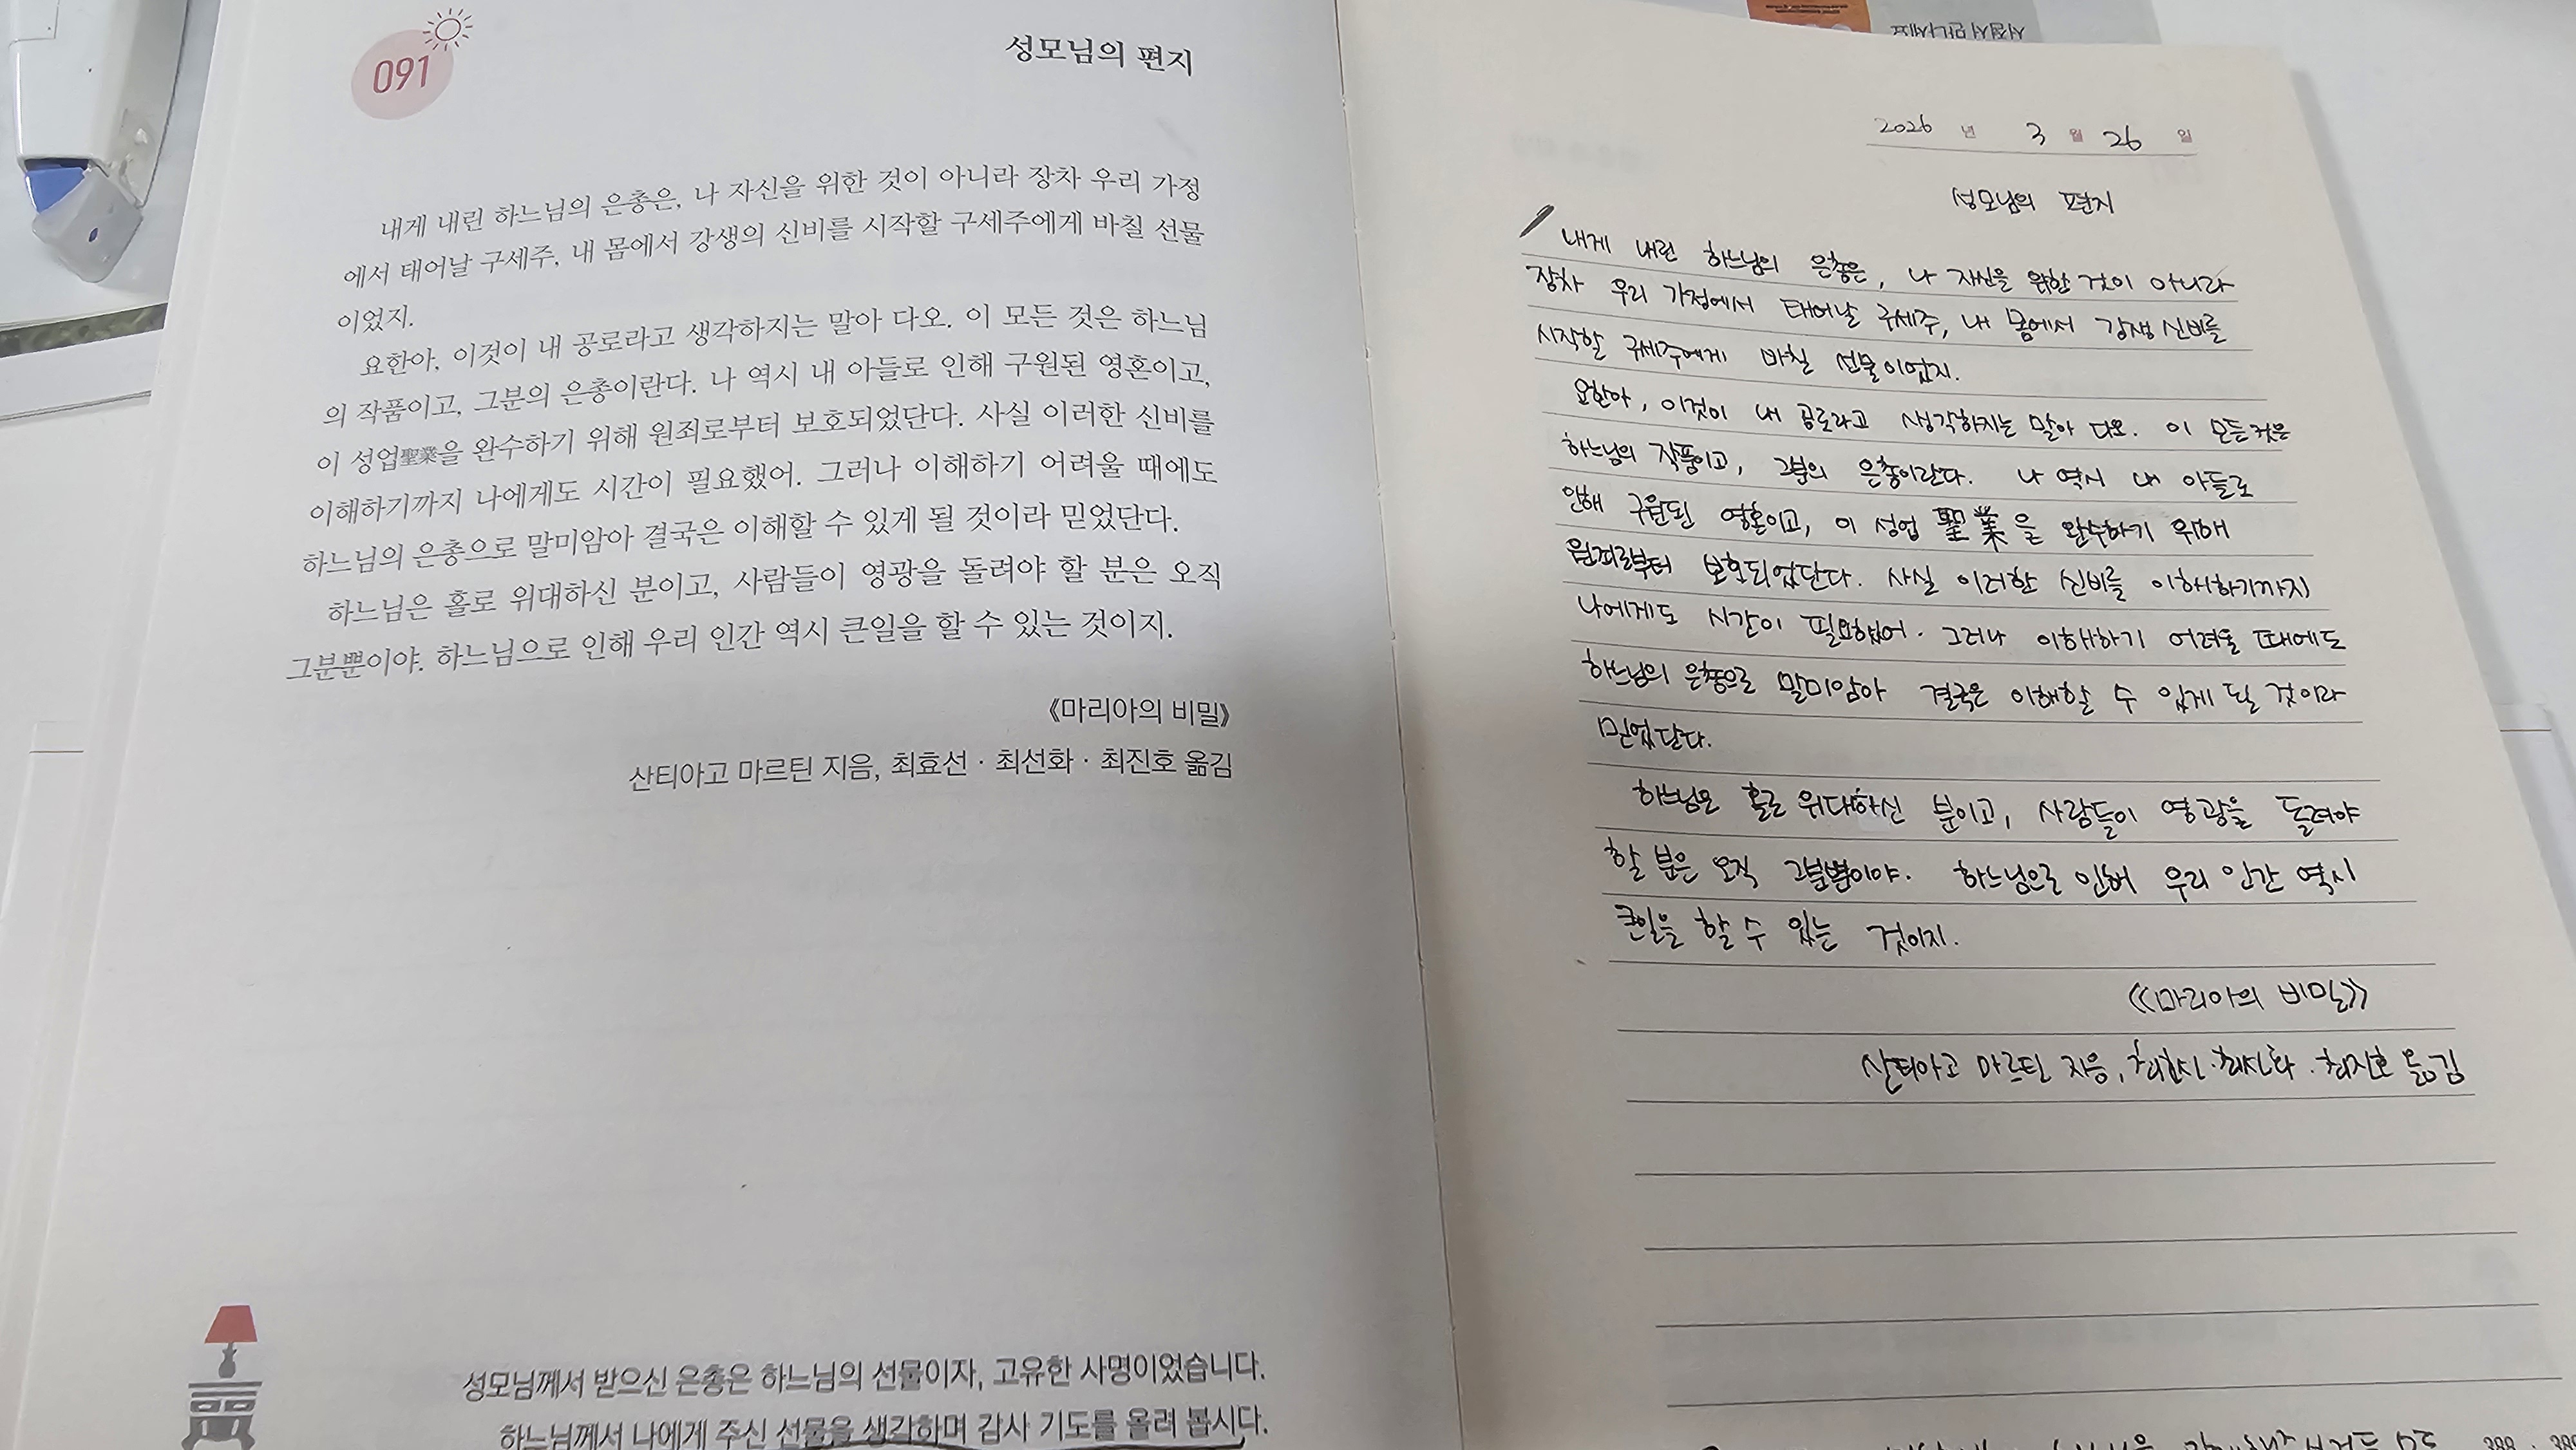 091
성모님의 편지
내게 내린 하느님의 은총은, 나 자신을 위한 것이 아니라 장차 우리 가정
에서 태어날 구세주, 내 몸에서 강생의 신비를 시작할 구세주에게 바칠 선물
이었지.
요한아, 이것이 내 공로라고 생각하지는 말아 다오. 이 모든 것은 하느님
의 작품이고, 그분의 은총이란다. 나 역시 내 아들로 인해 구원된 영혼이고,
이 성업聖業을 완수하기 위해 원죄로부터 보호되었단다. 사실 이러한 신비를
이해하기까지 나에게도 시간이 필요했어. 그러나 이해하기 어려울 때에도
하느님의 은총으로 말미암아 결국은 이해할 수 있게 될 것이라 믿었단다.
하느님은 홀로 위대하신 분이고, 사람들이 영광을 돌려야 할 분은 오직
그분뿐이야. 하느님으로 인해 우리 인간 역시 큰일을 할 수 있는 것이지.
《마리아의 비밀》
산티아고 마르틴 지음, 최효선 · 최선화 · 최진호 옮김
성모님께서 받으신 은총은 하느님의 선물이자, 고유한 사명이었습니다.
하느님께서 나에게 주신 선물을 생각하며 감사 기도를 올려 봅시다.
2026 년 3 월 26 일
성모님의 편지
내게 내린 하느님의 은총은, 나 자신을 위한 것이 아니라
장차 우리 가정에서 태어날 구세주, 내 몸에서 강생 신비를
시작할 구세주에게 바칠 선물이었지.
요한아, 이것이 내 공로라고 생각하지는 말아 다오. 이 모든 것은
하느님의 작품이고, 그분의 은총이란다. 나 역시 내 아들로
인해 구원된 영혼이고, 이 성업 聖業을 완수하기 위해
원죄로부터 보호되었단다. 사실 이러한 신비를 이해하기까지
나에게도 시간이 필요했어. 그러나 이해하기 어려울 때에도
하느님의 은총으로 말미암아 결국은 이해할 수 있게 될 것이라
믿었단다.
하느님은 홀로 위대하신 분이고, 사람들이 영광을 돌려야
할 분은 오직 그분뿐이야. 하느님으로 인해 우리 인간 역시
큰일을 할 수 있는 것이지.
《마리아의 비밀》
산티아고 마르틴 지음, 최진호 옮김